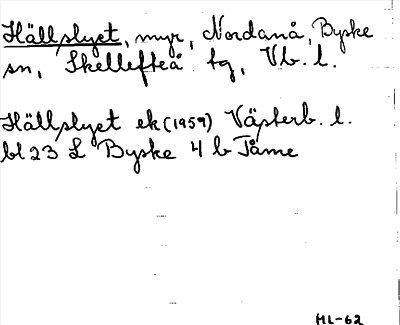 Hällslyet, myr, Nordanå, Byske
sn, Skellefteå tg, Vb. l.
Hällslyet ek (1959) Västerb. l.
bl 23 L Byske 4 b Tåme
HL-62